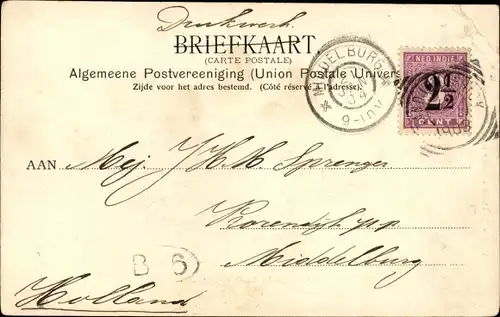 Drukwerk.
BRIEFKAART
(CARTE POSTALE)
Algemeene Postvereeniging (Union Postale Univers
Zijde voor het adres bestemd. (Côté réservé à l'adresse).
MIDDELBURG
9-10V
NED.INDIE
2 1/2
CENT
AAN Mej. J H M Sprenger
Middelburg
B 6
Holland